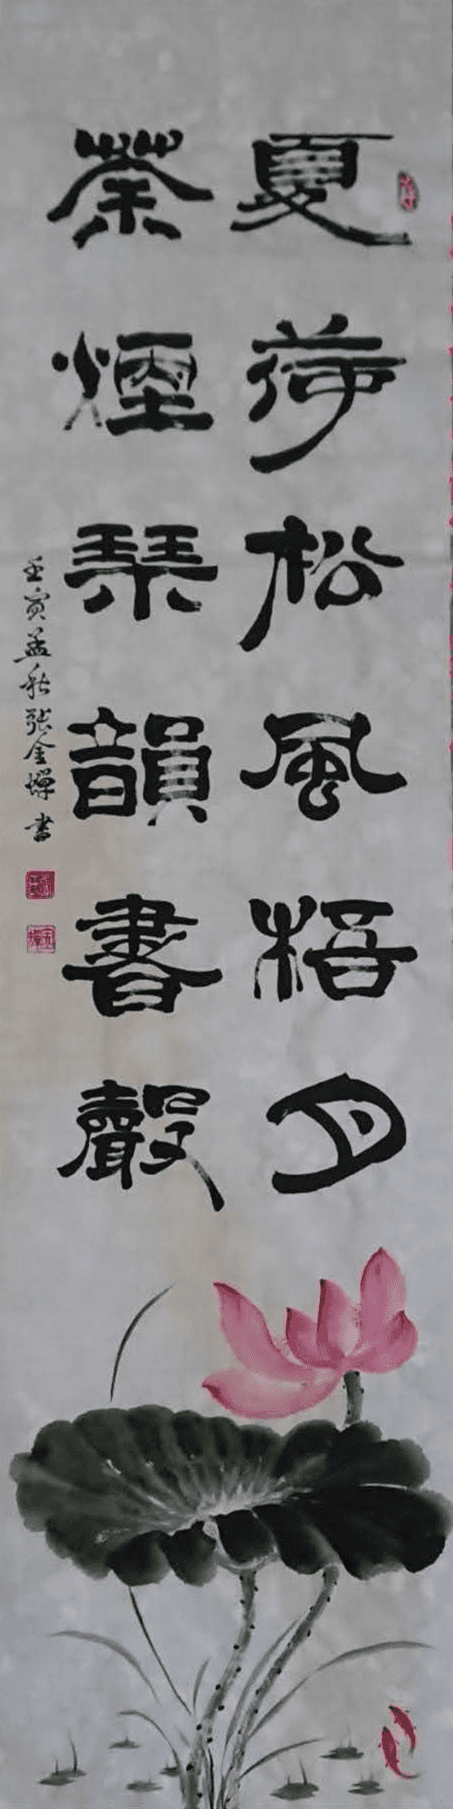 夏荷松風梧月
茶煙琴韻書聲
壬寅孟秋張金嬋書